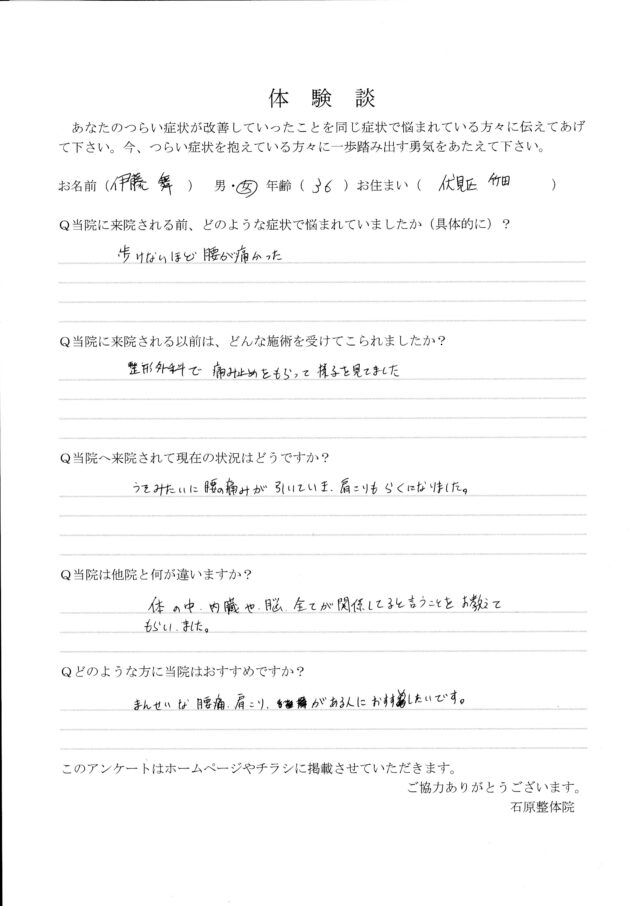 体験談
あなたのつらい症状が改善していったことを同じ症状で悩まれている方々に伝えてあげ
て下さい。今、つらい症状を抱えている方々に一歩踏み出す勇気をあたえて下さい。
お名前（伊藤 舞）男・女 年齢（36）お住まい（伏見区 竹田）
Q当院に来院される前、どのような症状で悩まれていましたか（具体的に）？
歩けないほど腰が痛かった
Q当院に来院される以前は、どんな施術を受けてこられましたか？
整形外科で 痛み止めをもらって 様子を見てました
Q当院へ来院されて現在の状況はどうですか？
うそみたいに腰の痛みが引いていき、肩こりもらくになりました。
Q当院は他院と何が違いますか？
体の中、内臓や、脳、全てが関係してると言うことをお教えて
もらいました。
Qどのような方に当院はおすすめですか？
まんせいな腰痛、肩こり、がある人におすすめしたいです。
このアンケートはホームページやチラシに掲載させていただきます。
ご協力ありがとうございます。
石原整体院